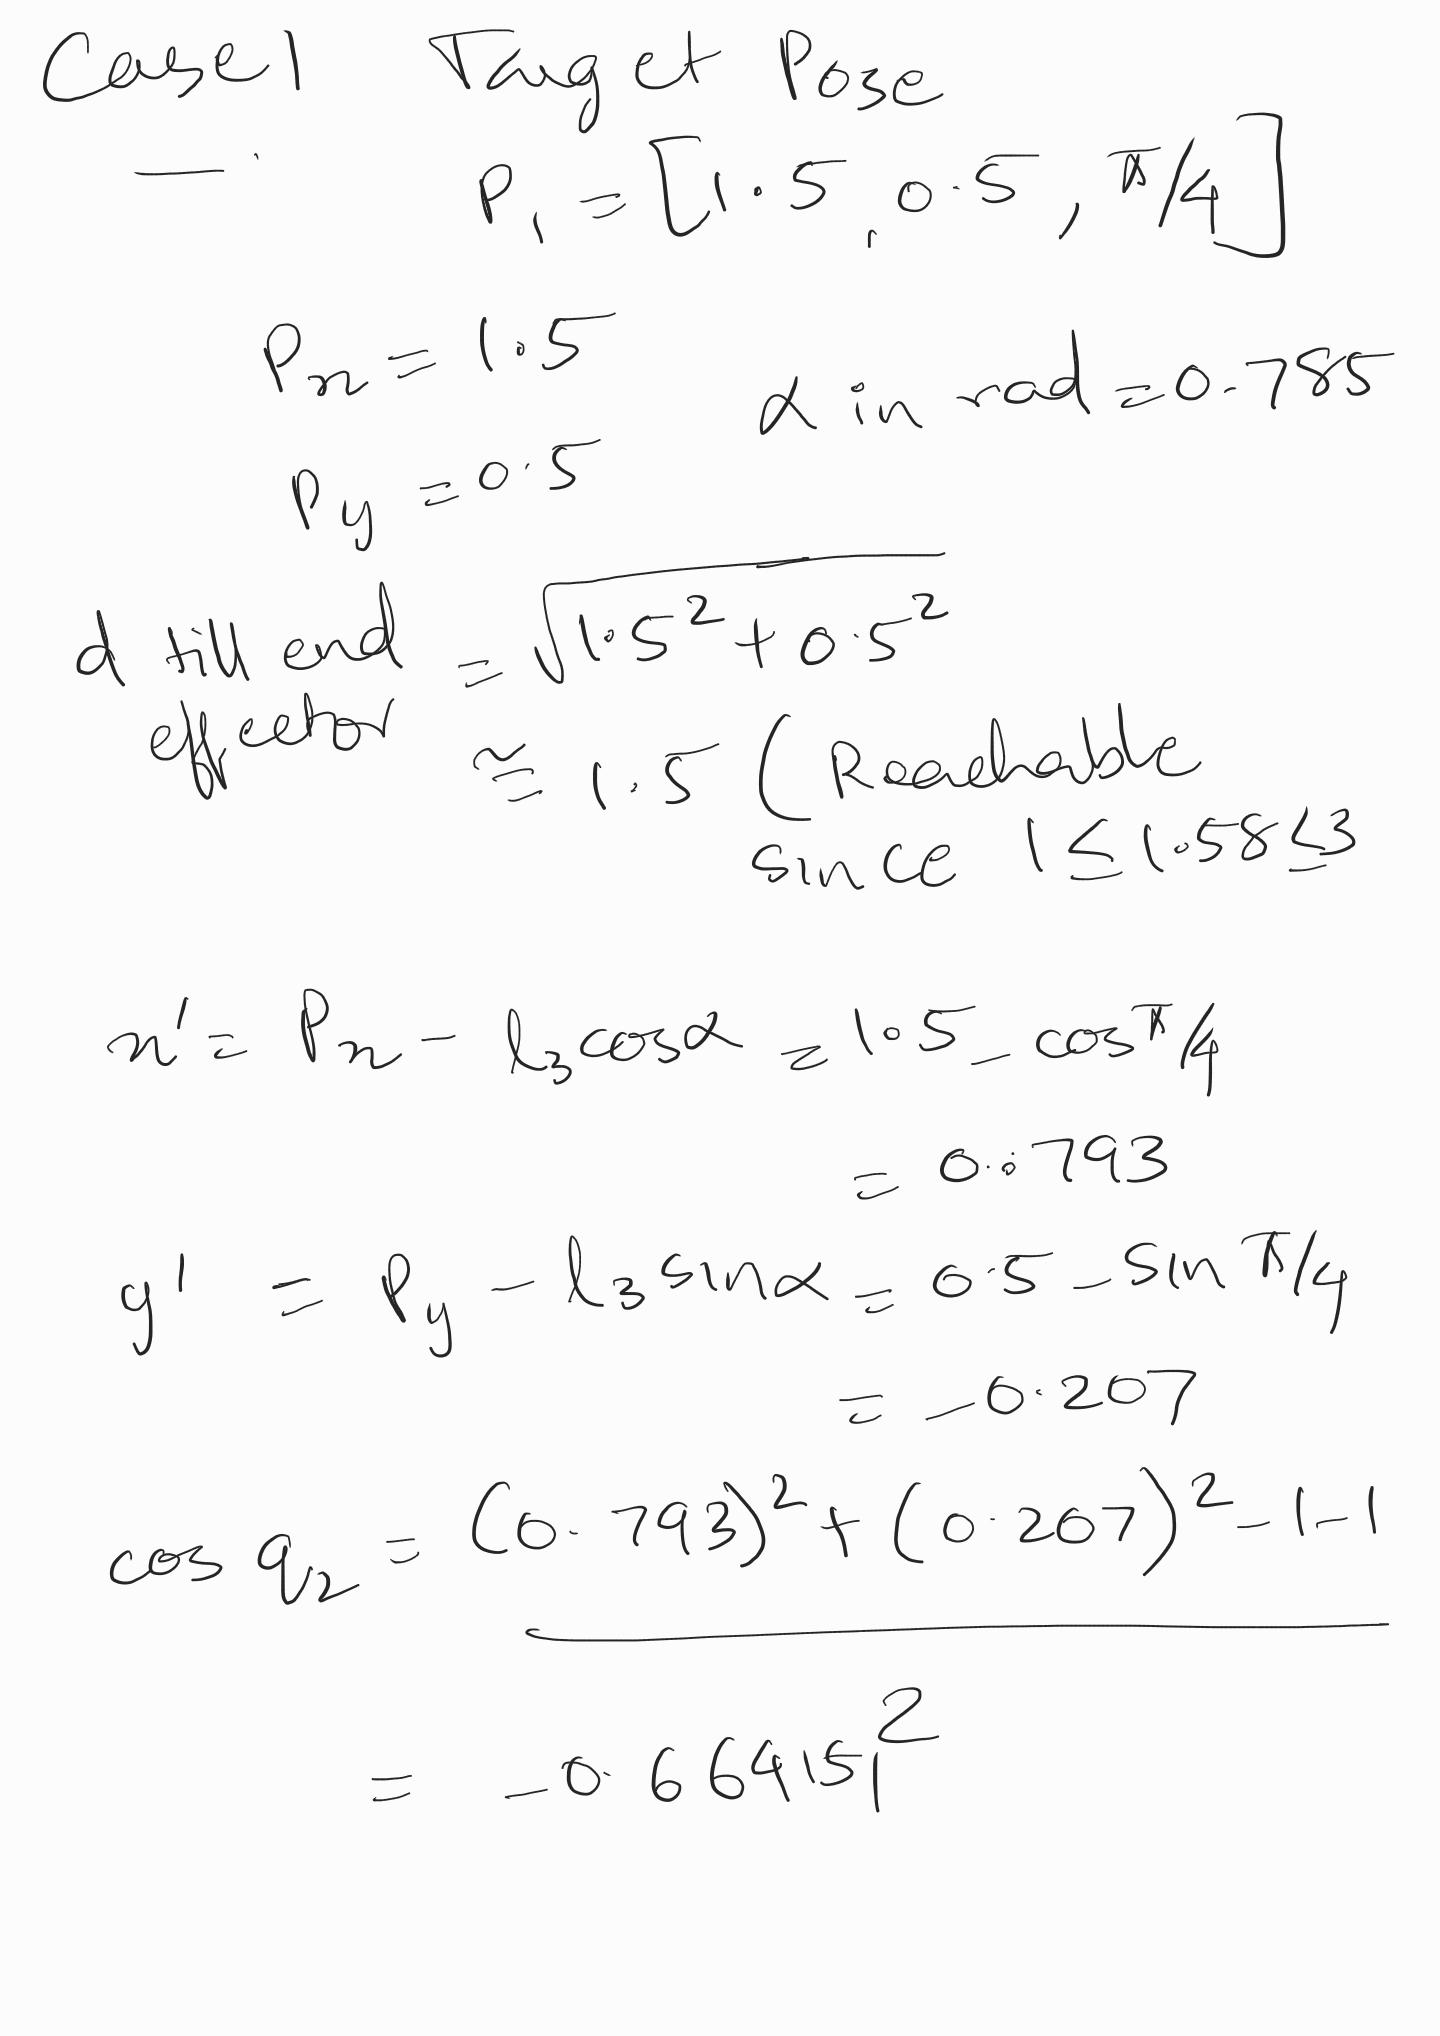 Case 1 Target Pose
P₁ = [1.5, 0.5, π/4]
Px = 1.5
α in rad = 0.785
Py = 0.5
d till end effector = √(1.5² + 0.5²)
≅ 1.5 (Reachable
since 1 ≤ 1.58 ≤ 3
x' = Px - l₃cosα = 1.5 - cos π/4
= 0.793
y' = Py - l₃sinα = 0.5 - sin π/4
= -0.207
cos q₂ = ((0.793)² + (0.207)² - 1 - 1) / 2
= -0.664151